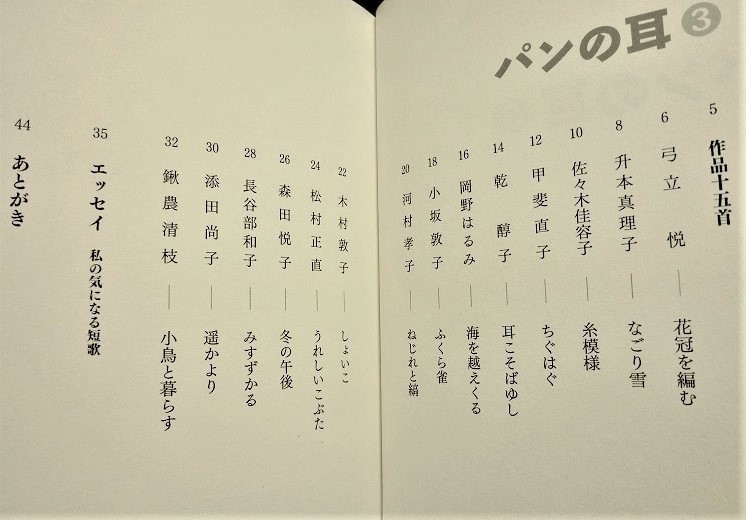 パンの耳 ③
5 作品十五首
6 弓立 悦 ― 花冠を編む
8 升本真理子 ― なごり雪
10 佐々木佳容子 ― 糸模様
12 甲斐直子 ― ちぐはぐ
14 乾 醇子 ― 耳こそばゆし
16 岡野はるみ ― 海を越えくる
18 小坂敦子 ― ふくら雀
20 河村孝子 ― ねじれと縞
22 木村敦子 ― しょいこ
24 松村正直 ― うれしいこぶた
26 森田悦子 ― 冬の午後
28 長谷部和子 ― みすずかる
30 添田尚子 ― 遥かより
32 鍬農清枝 ― 小鳥と暮らす
35 エッセイ 私の気になる短歌
44 あとがき